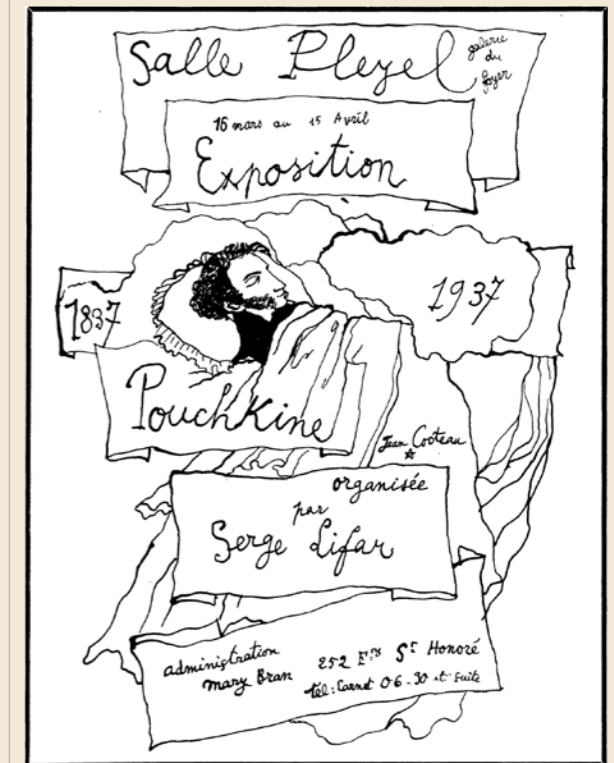 Salle Pleyel
galerie
du
foyer
16 mars au 15 Avril
Exposition
1837
1937
Pouchkine
Jean Cocteau
organisée
par
Serge Lifar
administration
mary Bran
252 Fg St Honoré
tél: Carnot 06-30 et Suite